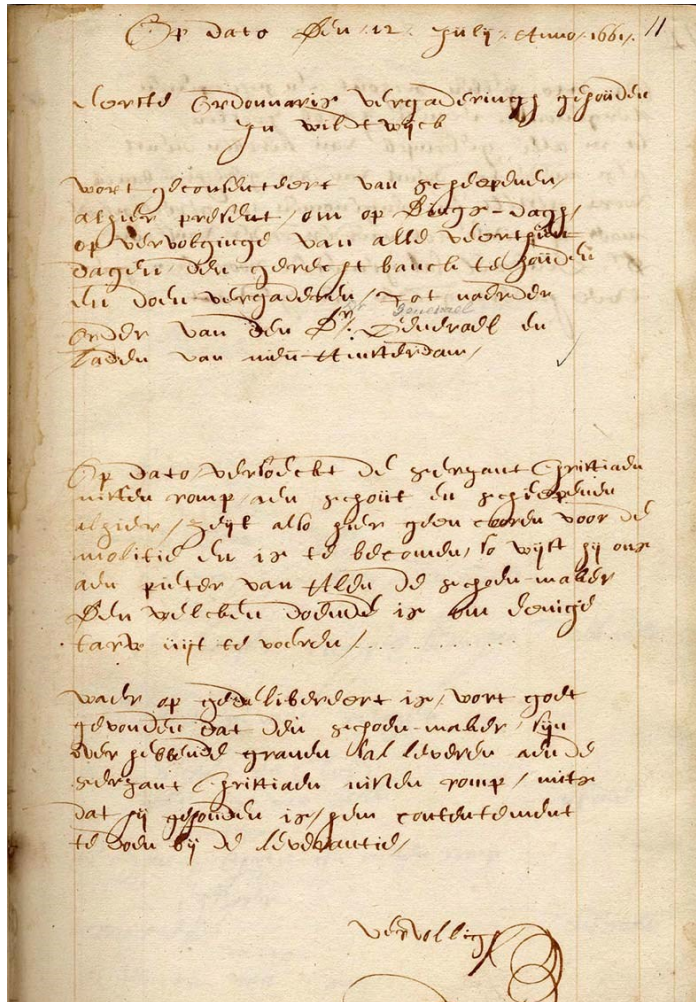 Op dato Den .12. Julÿ. Anno .1661. 11
Eerste Ordonnaris vergaderingh gehouden
In wildtwÿck
wort geconsenteert van scheepenen /
alhier present / om op Dings-dagh /
op vervolginge van alle veerthien
dagen den gerecht banck te houden
en doen vergaderen / Tot naerder
order van den Hr. Generael en
Raeden van nieu-Amsterdam /
Op dato / versoeckt de sergant Christiaen
nissen romp / aen schout en scheepenen
alhier / zeÿt also hier geen cooren voor de
molitie en is te becomen, so wÿst hÿ ons
aen pieter van Alen de schoen-maker
Den welcken doende is om eenige
tarw uÿt te voeren /
waer op gedelibereert is / wort goet
gevonden dat den schoen-maker / sÿn
over hebbende granen sal leveren aen de
sergant Christiaen nissen romp / mits
dat hÿ gehouden is / hem contentement
te doen bÿ de leverantie /
vervolligh